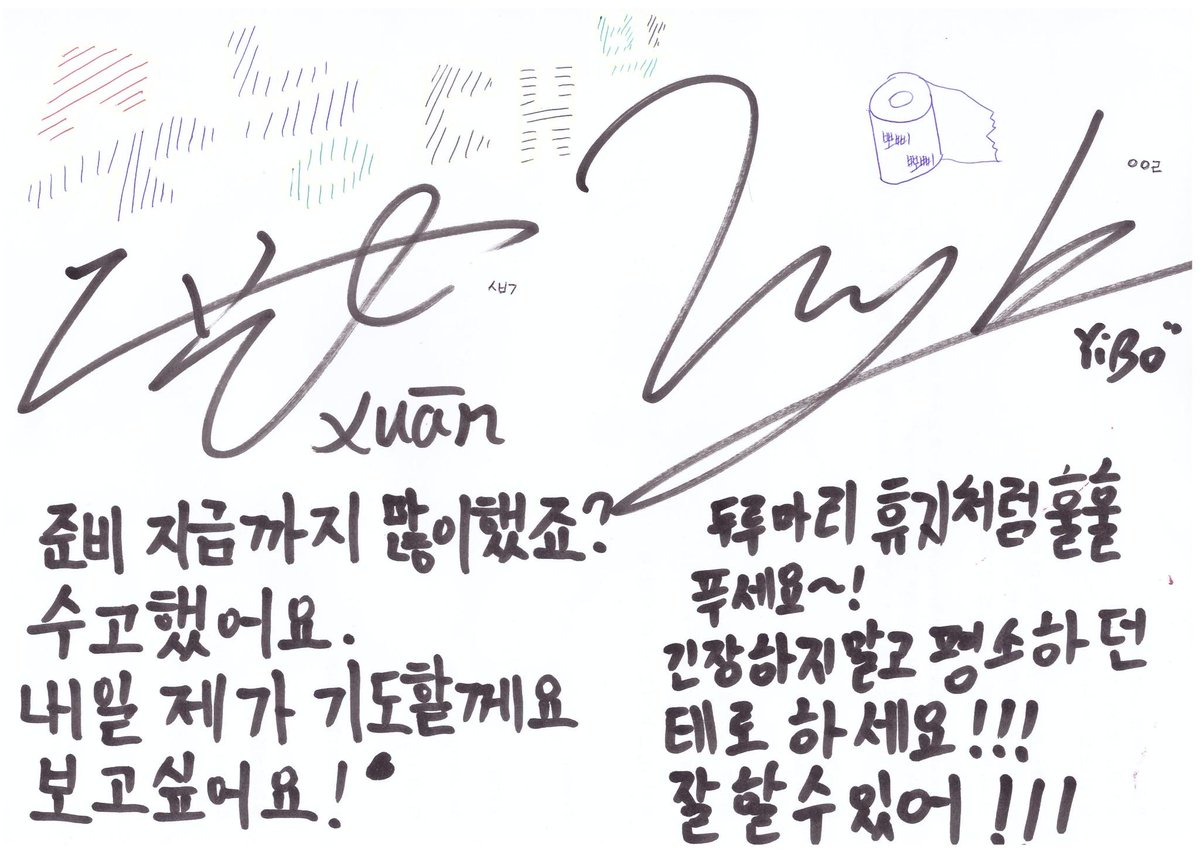 뽀삐
뽀삐
Xuān
YiBo
준비 지금까지 많이했죠?
수고했어요.
내일 제가 기도할께요
보고싶어요!
두루마리 휴지처럼 훌훌
푸세요~!
긴장하지말고 평소하던
테로 하세요!!!
잘 할 수 있어!!!!